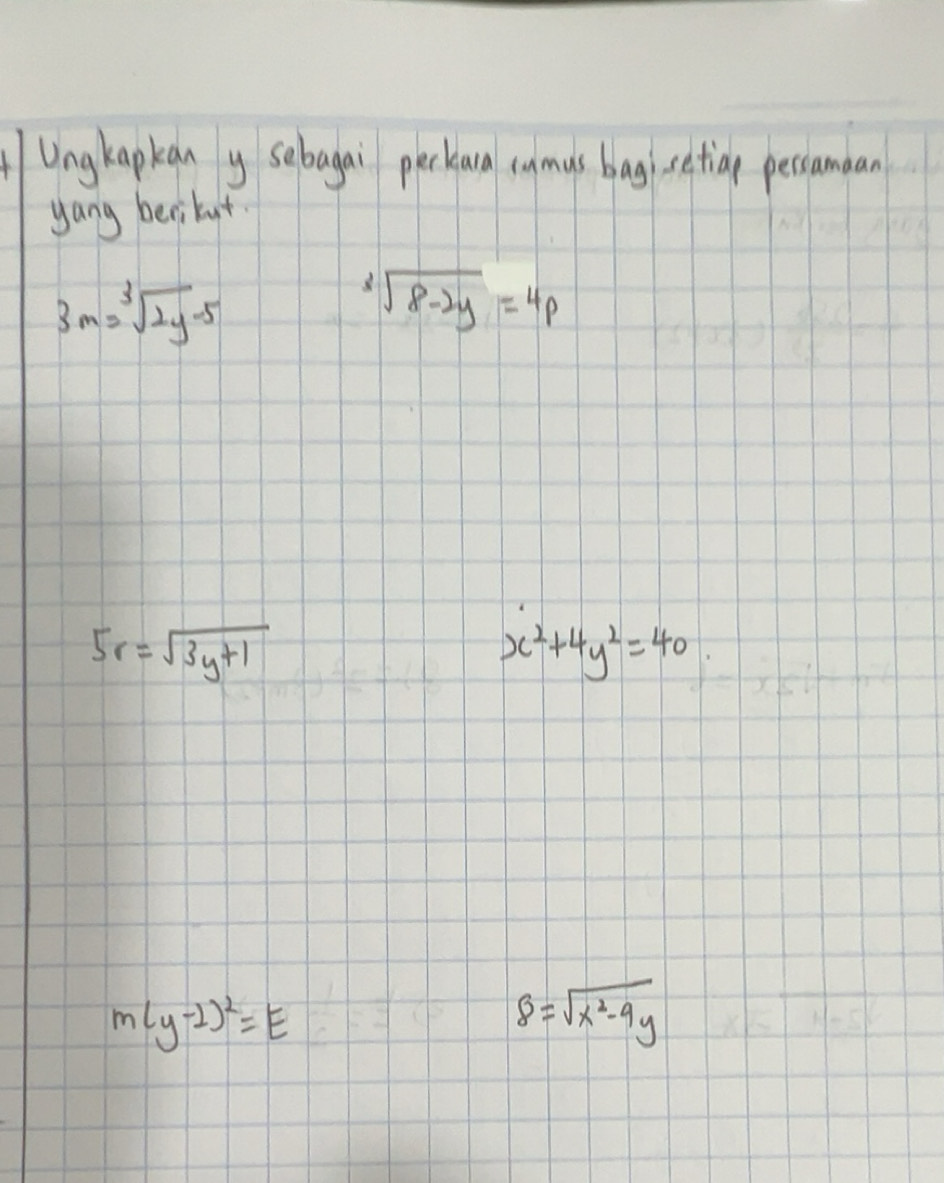 Ungkapkan y sebagai perkara rumus bagi setiap persamaan
yang berikut.
3m = ∛2y - 5
∛8-2y = 4p
5r = √3y+1
x² + 4y² = 40.
m(y-2)² = E
8 = √x²-9y